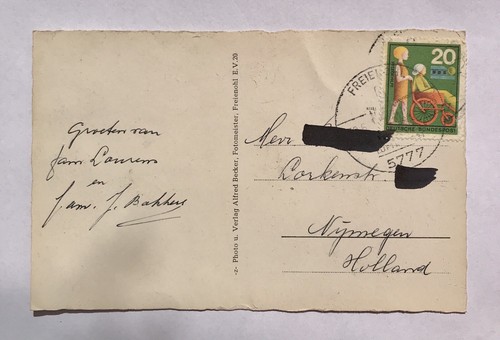 Groeten van
fam Lourens
en
fam. J. Bakkers
-2- Photo u. Verlag Alfred Becker, Fotomeister, Freienohl E.V. 20
Herr
Lorkenstr.
Nijmegen
Holland
20
DEUTSCHE BUNDESPOST
FREIENOHL
5777